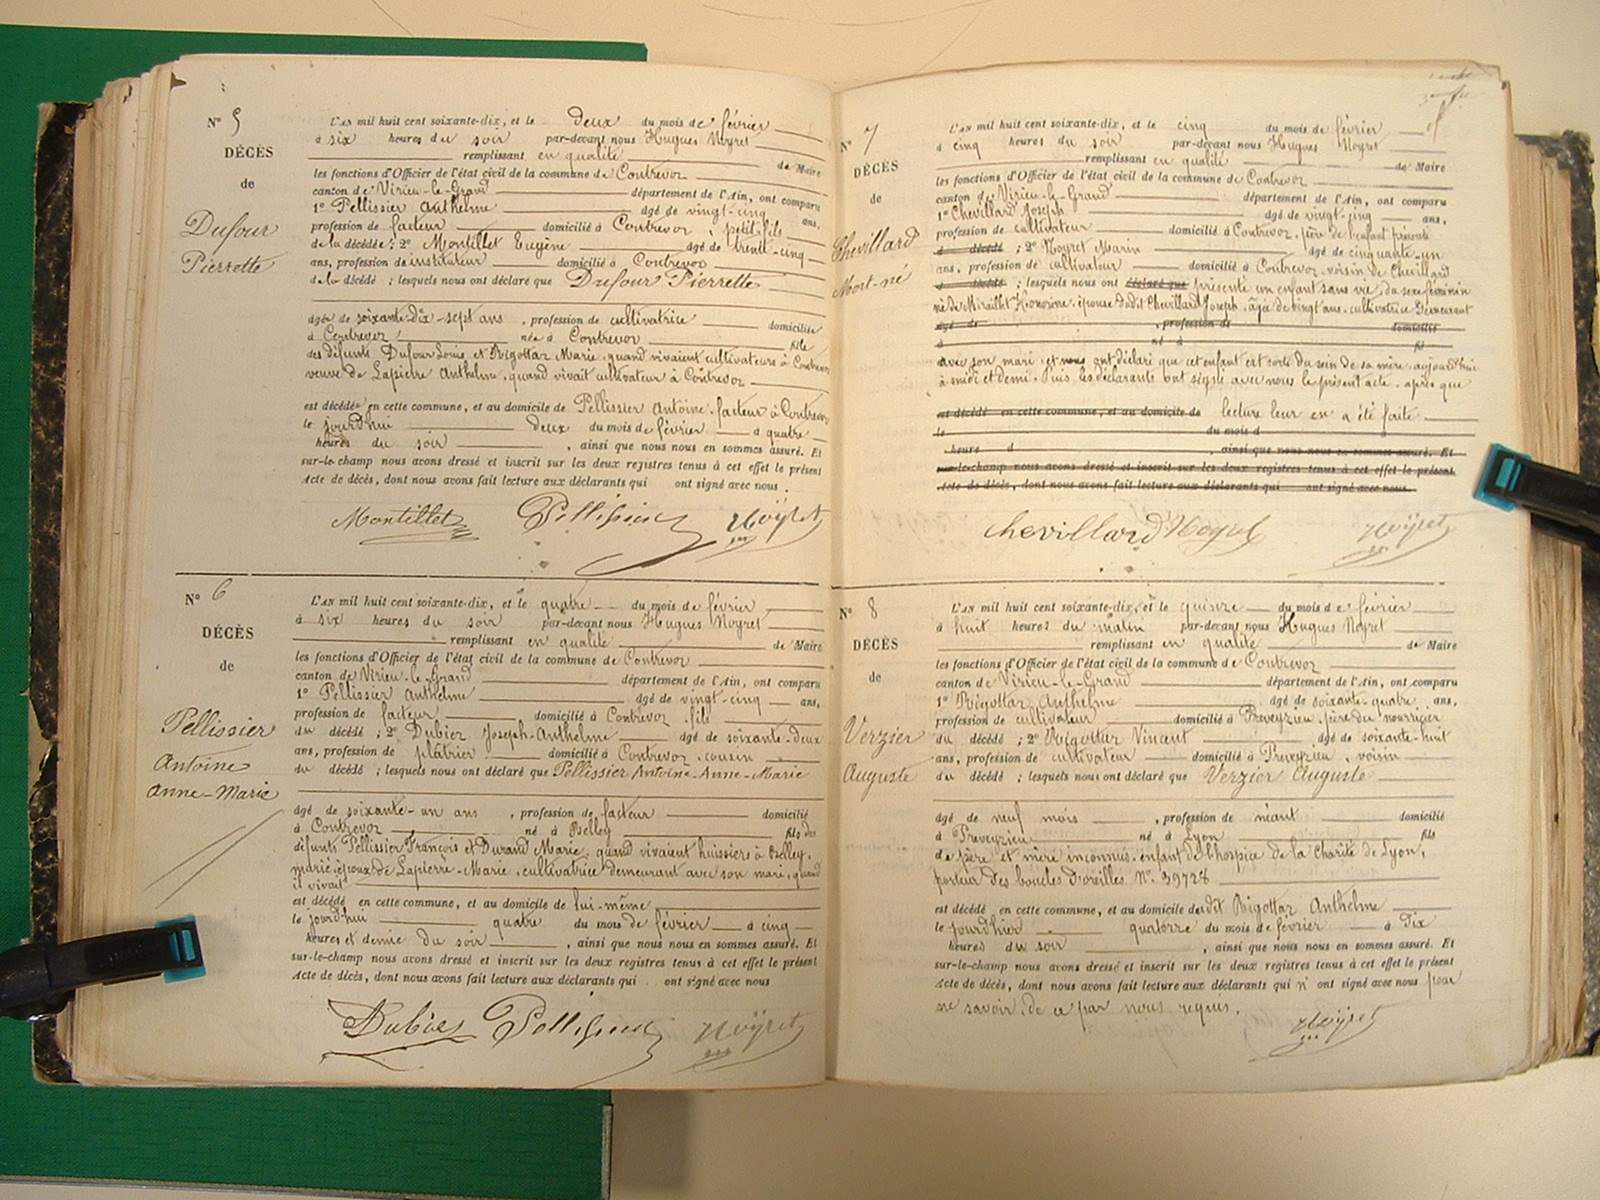 N° 5
DÉCÈS
de
Dufour
Pierrette
L'AN mil huit cent soixante-dix, et le deux du mois de février
à six heures du soir par-devant nous Hugues Noyret
remplissant en qualité de Maire
les fonctions d'Officier de l'état civil de la commune de Contrevoz
canton de Virieu-le-Grand département de l'Ain, ont comparu
1° Pellissier Anthelme âgé de vingt-cinq ans,
profession de facteur domicilié à Contrevoz, petit-fils
de la décédée ; 2° Montillet Eugène âgé de trente-cinq
ans, profession de instituteur domicilié à Contrevoz
de la décédé ; lesquels nous ont déclaré que Dufour Pierrette
âgée de soixante-dix-sept ans, profession de cultivatrice domiciliée
à Contrevoz née à Contrevoz fille
des défunts Dufour Louis et Rigottaz Marie, quand vivaient cultivateurs à Contrevoz
veuve de Lapierre Anthelme, quand vivait cultivateur à Contrevoz
est décédée en cette commune, et au domicile de Pellissier Antoine, facteur à Contrevoz
le jourd'hui deux du mois de février à quatre
heures du soir, ainsi que nous nous en sommes assuré. Et
sur-le-champ nous avons dressé et inscrit sur les deux registres tenus à cet effet le présent
Acte de décès, dont nous avons fait lecture aux déclarants qui ont signé avec nous.
Montillet Pellissier Noÿret
N° 6
DÉCÈS
de
Pellissier
Antoine
Anne-Marie
L'AN mil huit cent soixante-dix, et le quatre du mois de février
à six heures du soir par-devant nous Hugues Noyret
remplissant en qualité de Maire
les fonctions d'Officier de l'état civil de la commune de Contrevoz
canton de Virieu-le-Grand département de l'Ain, ont comparu
1° Pellissier Anthelme âgé de vingt-cinq ans,
profession de facteur domicilié à Contrevoz, fils
du décédé ; 2° Dubiez Joseph-Anthelme âgé de soixante-deux
ans, profession de plâtrier domicilié à Contrevoz, cousin
du décédé ; lesquels nous ont déclaré que Pellissier Antoine-Anne-Marie
âgé de soixante-un ans, profession de facteur domicilié
à Contrevoz né à Belley fils des
défunts Pellissier François et Durand Marie, quand vivaient huissiers à Belley,
marié, époux de Lapierre-Marie, cultivatrice demeurant avec son mari, quand
il vivait
est décédé en cette commune, et au domicile de lui-même
le jourd'hui quatre du mois de février à cinq
heures et demie du soir, ainsi que nous nous en sommes assuré. Et
sur-le-champ nous avons dressé et inscrit sur les deux registres tenus à cet effet le présent
Acte de décès, dont nous avons fait lecture aux déclarants qui ont signé avec nous
Dubiez Pellissier Noÿret
N° 7
DÉCÈS
de
Chevillard
Mort-né
L'AN mil huit cent soixante-dix, et le cinq du mois de février
à cinq heures du soir par-devant nous Hugues Noyret
remplissant en qualité de Maire
les fonctions d'Officier de l'état civil de la commune de Contrevoz
canton de Virieu-le-Grand département de l'Ain, ont comparu
1° Chevillard Joseph âgé de vingt-cinq ans,
profession de cultivateur domicilié à Contrevoz, père de l'enfant présenté
d décédé ; 2° Noyret Marin âgé de cinquante-un
ans, profession de cultivateur domicilié à Contrevoz, voisin de Chevillard
d décédé ; lesquels nous ont déclaré que présenté un enfant sans vie, du sexe féminin
né de Miraillet Honorine, épouse dudit Chevillard Joseph, âgée de vingt ans, cultivatrice demeurant
âgé de , profession de domicilié
à né à fil
avec son mari, et nous ont déclaré que cet enfant est sorti du sein de sa mère, aujourd'hui
à midi et demi. Puis les déclarants ont signé avec nous le présent acte, après que
est décédé en cette commune, et au domicile de lecture leur en a été faite
le du mois d à
heure d , ainsi que nous nous en sommes assuré. Et
sur-le-champ nous avons dressé et inscrit sur les deux registres tenus à cet effet le présent
Acte de décès, dont nous avons fait lecture aux déclarants qui ont signé avec nous.
Chevillard Noyret Noÿret
N° 8
DÉCÈS
de
Verzier
Auguste
L'AN mil huit cent soixante-dix, et le quinze du mois de février
à huit heures du matin par-devant nous Hugues Noyret
remplissant en qualité de Maire
les fonctions d'Officier de l'état civil de la commune de Contrevoz
canton de Virieu-le-Grand département de l'Ain, ont comparu
1° Rigottaz Anthelme âgé de soixante-quatre ans,
profession de cultivateur domicilié à Preveyzieu, père du nourricier
du décédé ; 2° Rigottaz Vincent âgé de soixante-huit
ans, profession de cultivateur domicilié à Preveyzieu, voisin
du décédé ; lesquels nous ont déclaré que Verzier Auguste
âgé de neuf mois, profession de néant domicilié
à Preveyzieu né à Lyon fils
de père et mère inconnus, enfant de l'hospice de la Charité de Lyon,
porteur des boucles d'oreilles N° 39728
est décédé en cette commune, et au domicile dudit Rigottaz Anthelme
le jourd'hier quatorze du mois de février à dix
heures du soir, ainsi que nous nous en sommes assuré. Et
sur-le-champ nous avons dressé et inscrit sur les deux registres tenus à cet effet le présent
Acte de décès, dont nous avons fait lecture aux déclarants qui n'ont signé avec nous pour
ne savoir, de ce par nous requis.
Noÿret